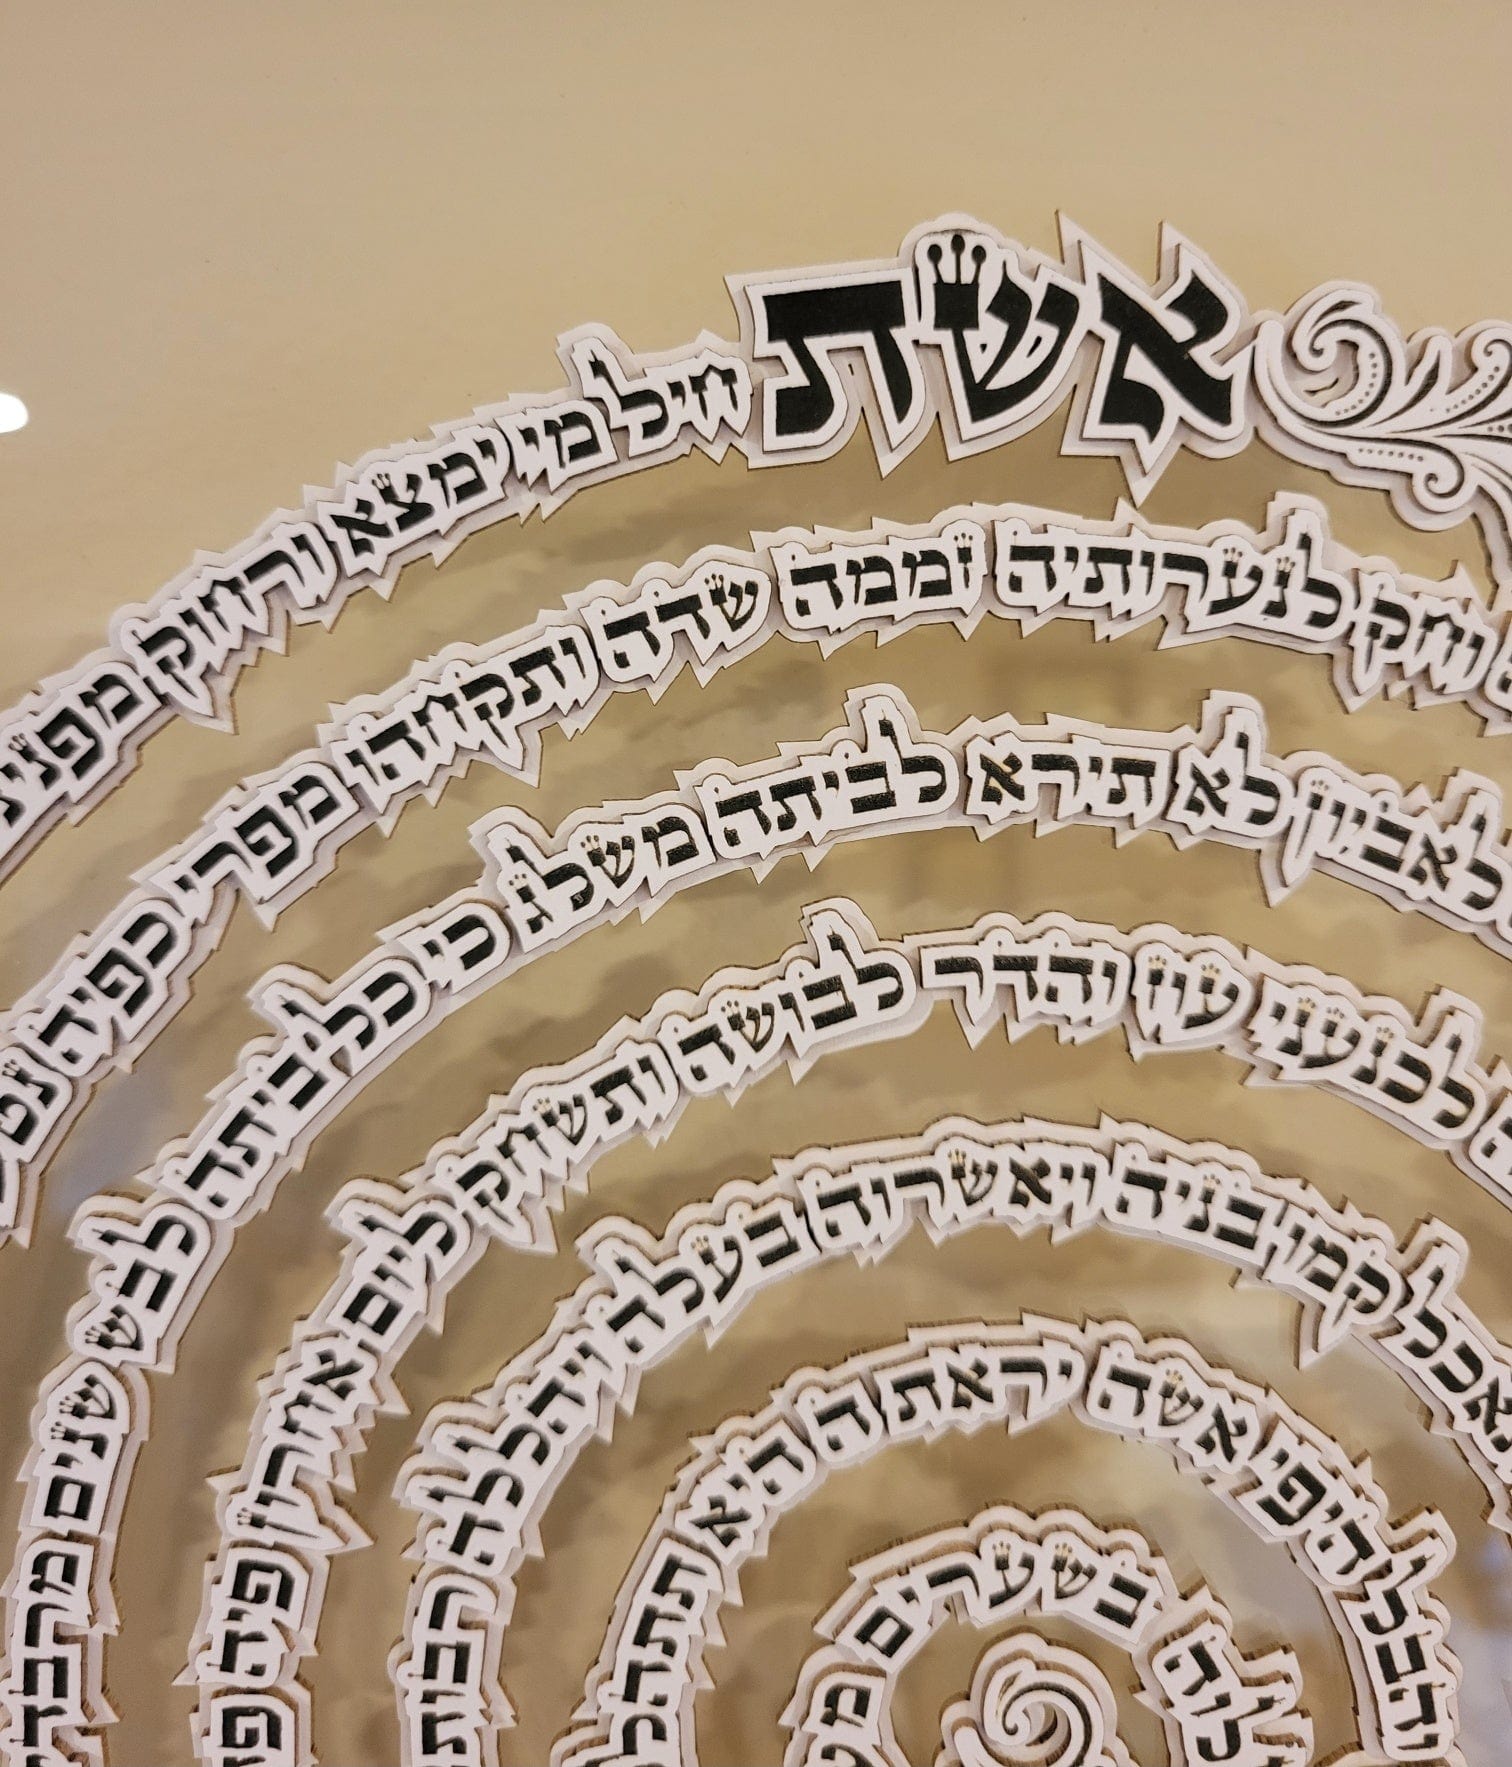 אשת חיל מי ימצא ורחוק
וחק לנערותיה זממה שדה ותקחהו מפרי כפיה
לאביון לא תירא לביתה משלג כי כל ביתה לבש שנים
לכנעני עוז והדר לבושה ותשחק ליום אחרון פיה
קמו בניה ויאשרוה בעלה ויהללה רבות
והבל היפי אשה יראת ה היא
בשערים